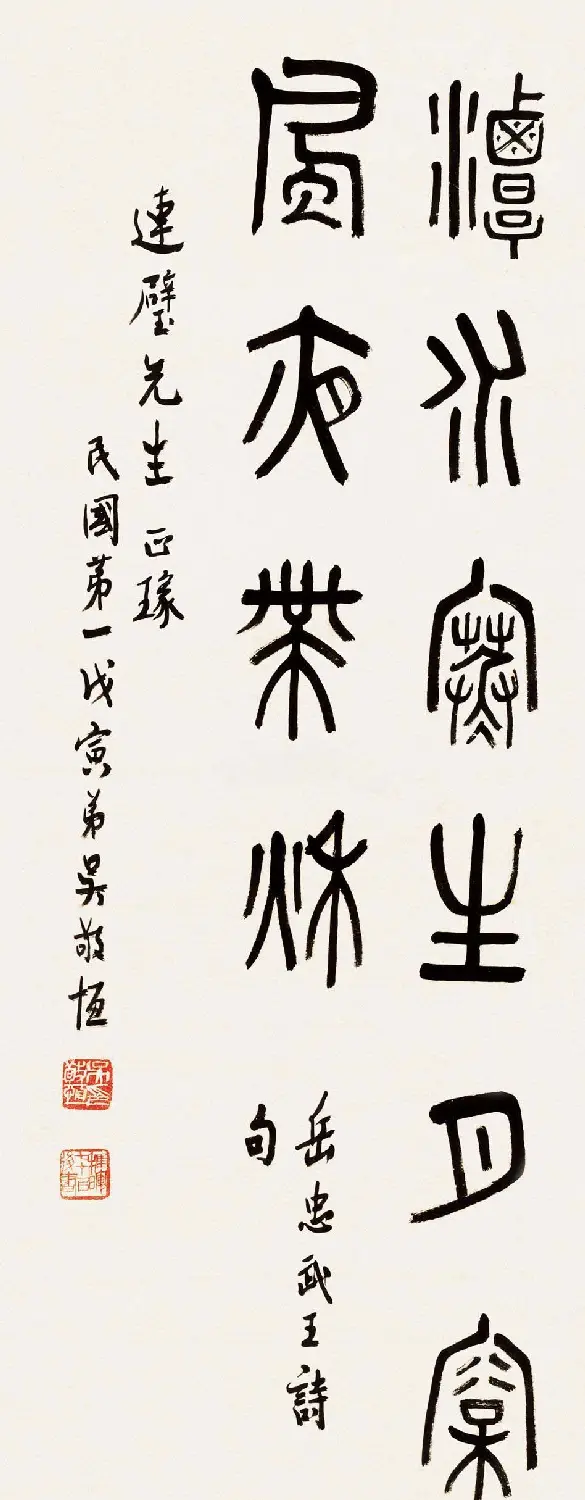 潭水寒生月松
風夜帶秋
岳忠武王詩
句
連璧先生 正瑑
民國第一戊寅弟吳敬恆